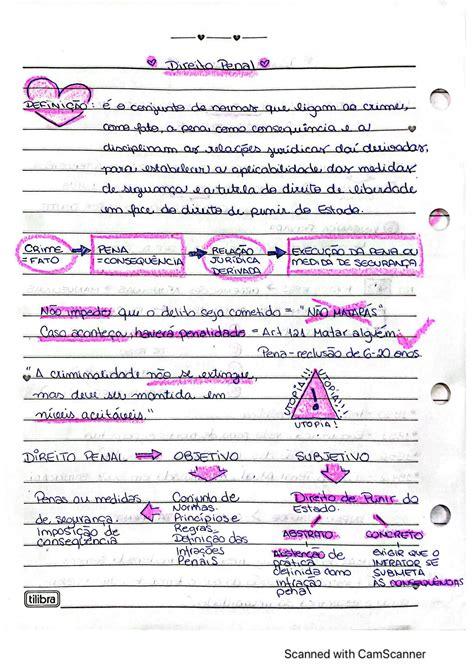 Direito Penal
DEFINIÇÃO: é o conjunto de normas que ligam ao crime,
como fato, a pena como consequência e a
disciplinam as relações jurídicas daí derivadas,
para estabelecer a aplicabilidade das medidas
de segurança e a tutela do direito de liberdade
em face do direito de punir do Estado.
CRIME = FATO → PENA = CONSEQUÊNCIA → RELAÇÃO JURÍDICA DERIVADA → EXECUÇÃO DA PENA OU MEDIDA DE SEGURANÇA
Não impede que o delito seja cometido = "NÃO MATARÁS"
Caso aconteça, haverá penalidade = Art 121 Matar alguém:
Pena-reclusão de 6-20 anos.
"A criminalidade não se extingue,
mas deve ser mantida em
níveis aceitáveis."
UTOPIA!!
UTOPIA!!
!
UTOPIA!
DIREITO PENAL ⇒ OBJETIVO
SUBJETIVO
Penas ou medidas
de segurança.
Imposição de
consequência
Conjunto de
Normas.
Princípios e
Regras.
Definição das
Infrações
Penais
Direito de Punir do
Estado.
ABSTRATO
Abstenção de
prática
definida como
infração
penal
CONCRETO
EXIGIR QUE O
INFRATOR SE
SUBMETA
AS CONSEQUÊNCIAS
tilibra
Scanned with CamScanner